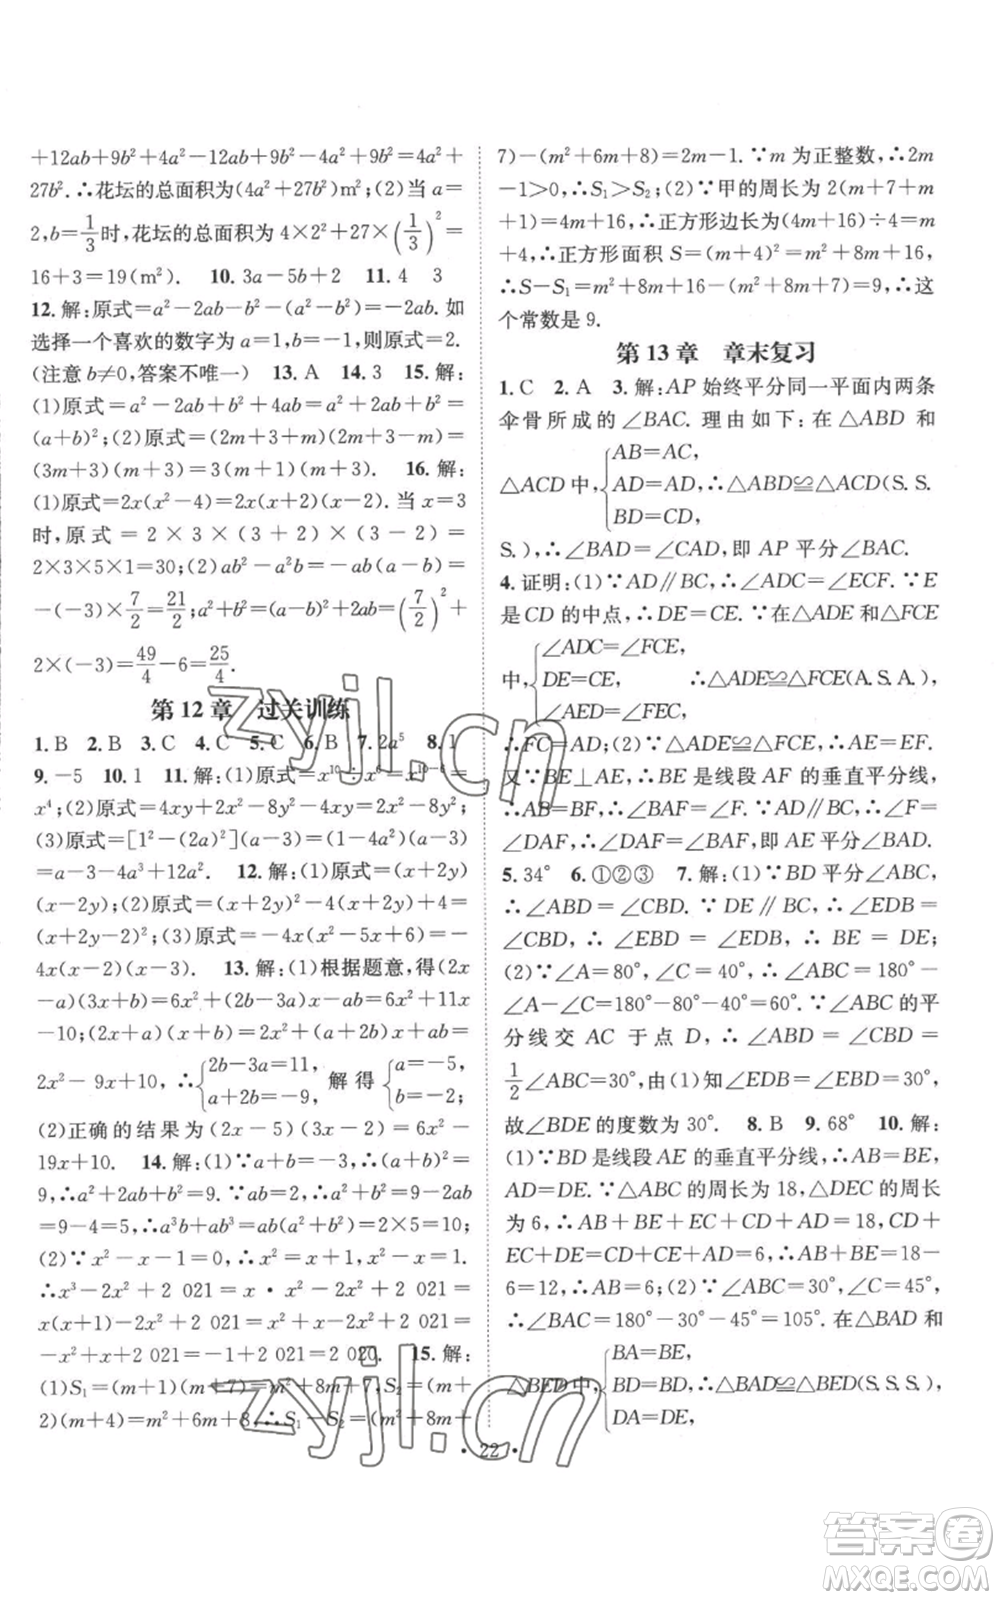 +12ab+9b²+4a²-12ab+9b²-4a²+9b²=4a²+
27b².∴花坛的总面积为(4a²+27b²)m²;(2)当 a=
2,b=1/3时,花坛的总面积为 4×2²+27×(1/3)²=
16+3=19(m²). 10. 3a-5b+2 11. 4 3
12. 解:原式=a²-2ab-b²-(a²-b²)=-2ab.如
选择一个喜欢的数字为 a=1,b=-1,则原式=2.
(注意 b≠0,答案不唯一) 13. A 14. 3 15. 解:
(1)原式=a²-2ab+b²+4ab=a²+2ab+b²=
(a+b)²;(2)原式=(2m+3+m)(2m+3-m)=
(3m+3)(m+3)=3(m+1)(m+3). 16. 解:
(1)原式=2x(x²-4)=2x(x+2)(x-2).当 x=3
时,原式=2×3×(3+2)×(3-2)=
2×3×5×1=30;(2)ab²-a²b=-ab(a-b)=
-(-3)×7/2=21/2;a²+b²=(a-b)²+2ab=(7/2)²+
2×(-3)=49/4-6=25/4.
第 12 章 过关训练
1. B 2. B 3. C 4. C 5. C 6. B 7. 2a⁵ 8. 1
9. -5 10. 1 11. 解:(1)原式=x¹⁰÷x⁶=x¹⁰⁻⁶=
x⁴;(2)原式=4xy+2x²-8y²-4xy=2x²-8y²;
(3)原式=[1²-(2a)²](a-3)=(1-4a²)(a-3)
=a-3-4a³+12a². 12. 解:(1)原式=(x+2y)
(x-2y);(2)原式=(x+2y)²-4(x+2y)+4=
(x+2y-2)²;(3)原式=-4x(x²-5x+6)=
-4x(x-2)(x-3). 13. 解:(1)根据题意,得(2x
-a)(3x+b)=6x²+(2b-3a)x-ab=6x²+11x
-10;(2x+a)(x+b)=2x²+(a+2b)x+ab=
2x²-9x+10,∴{2b-3a=11, a+2b=-9, 解得{a=-5, b=-2;
(2)正确的结果为(2x-5)(3x-2)=6x²-
19x+10. 14. 解:(1)∵a+b=-3,∴(a+b)²=
9,∴a²+2ab+b²=9.∵ab=2,∴a²+b²=9-2ab
=9-4=5,∴a³b+ab³=ab(a²+b²)=2×5=10;
(2)∵x²-x-1=0,∴x²-1=x,x²-x=1.
∴x³-2x²+2 021=x·x²-2x²+2 021=
x(x+1)-2x²+2 021=x²+x-2x²+2 021=
-x²+x+2 021=-1+2 021=2 020. 15. 解:
(1)S₁=(m+1)(m+7)=m²+8m+7,S₂=(m+
2)(m+4)=m²+6m+8,∴S₁-S₂=(m²+8m+
7)-(m²+6m+8)=2m-1.∵m 为正整数,∴2m
-1>0,∴S₁>S₂;(2)∵甲的周长为 2(m+7+m
+1)=4m+16,∴正方形边长为(4m+16)÷4=m
+4,∴正方形面积 S=(m+4)²=m²+8m+16,
∴S-S₁=m²+8m+16-(m²+8m+7)=9,∴这
个常数是 9.
第 13 章 章末复习
1. C 2. A 3. 解:AP 始终平分同一平面内两条
伞骨所成的∠BAC.理由如下:在△ABD 和
△ACD 中,{AB=AC, AD=AD, BD=CD, ∴△ABD≌△ACD(S.S.
S.),∴∠BAD=∠CAD,即 AP 平分∠BAC.
4. 证明:(1)∵AD∥BC,∴∠ADC=∠ECF.∵E
是 CD 的中点,∴DE=CE.∵在△ADE 和△FCE
中,{∠ADC=∠FCE, DE=CE, ∠AED=∠FEC, ∴△ADE≌△FCE(A.S.A.),
∴FC=AD;(2)∵△ADE≌△FCE,∴AE=EF.
又∵BE⊥AE,∴BE 是线段 AF 的垂直平分线,
∴AB=BF,∴∠BAF=∠F.∵AD∥BC,∴∠F
=∠DAF,∴∠DAF=∠BAF,即 AE 平分∠BAD.
5. 34° 6. ①②③ 7. 解:(1)∵BD 平分∠ABC,
∴∠ABD=∠CBD.∵DE∥BC,∴∠EDB=
∠CBD,∴∠EBD=∠EDB,∴BE=DE;
(2)∵∠A=80°,∠C=40°,∴∠ABC=180°-
∠A-∠C=180°-80°-40°=60°.∵∠ABC 的平
分线交 AC 于点 D,∴∠ABD=∠CBD=
1/2∠ABC=30°,由(1)知∠EDB=∠EBD=30°,
故∠BDE 的度数为 30° 8. B 9. 68° 10. 解:
(1)∵BD 是线段 AE 的垂直平分线,∴AB=BE,
AD=DE.∵△ABC 的周长为 18,△DEC 的周长
为 6,∴AB+BE+EC+CD+AD=18,CD+
EC+DE=CD+CE+AD=6,∴AB+BE=18-
6=12,∴AB=6;(2)∵∠ABC=30°,∠C=45°,
∴∠BAC=180°-30°-45°=105°.在△BAD 和
△BED 中,{BA=BE, BD=BD, DA=DE, ∴△BAD≌△BED(S.S.S.),
·22·
zyjl.cn
zyjl.cn
答案圈
MXQE.COM